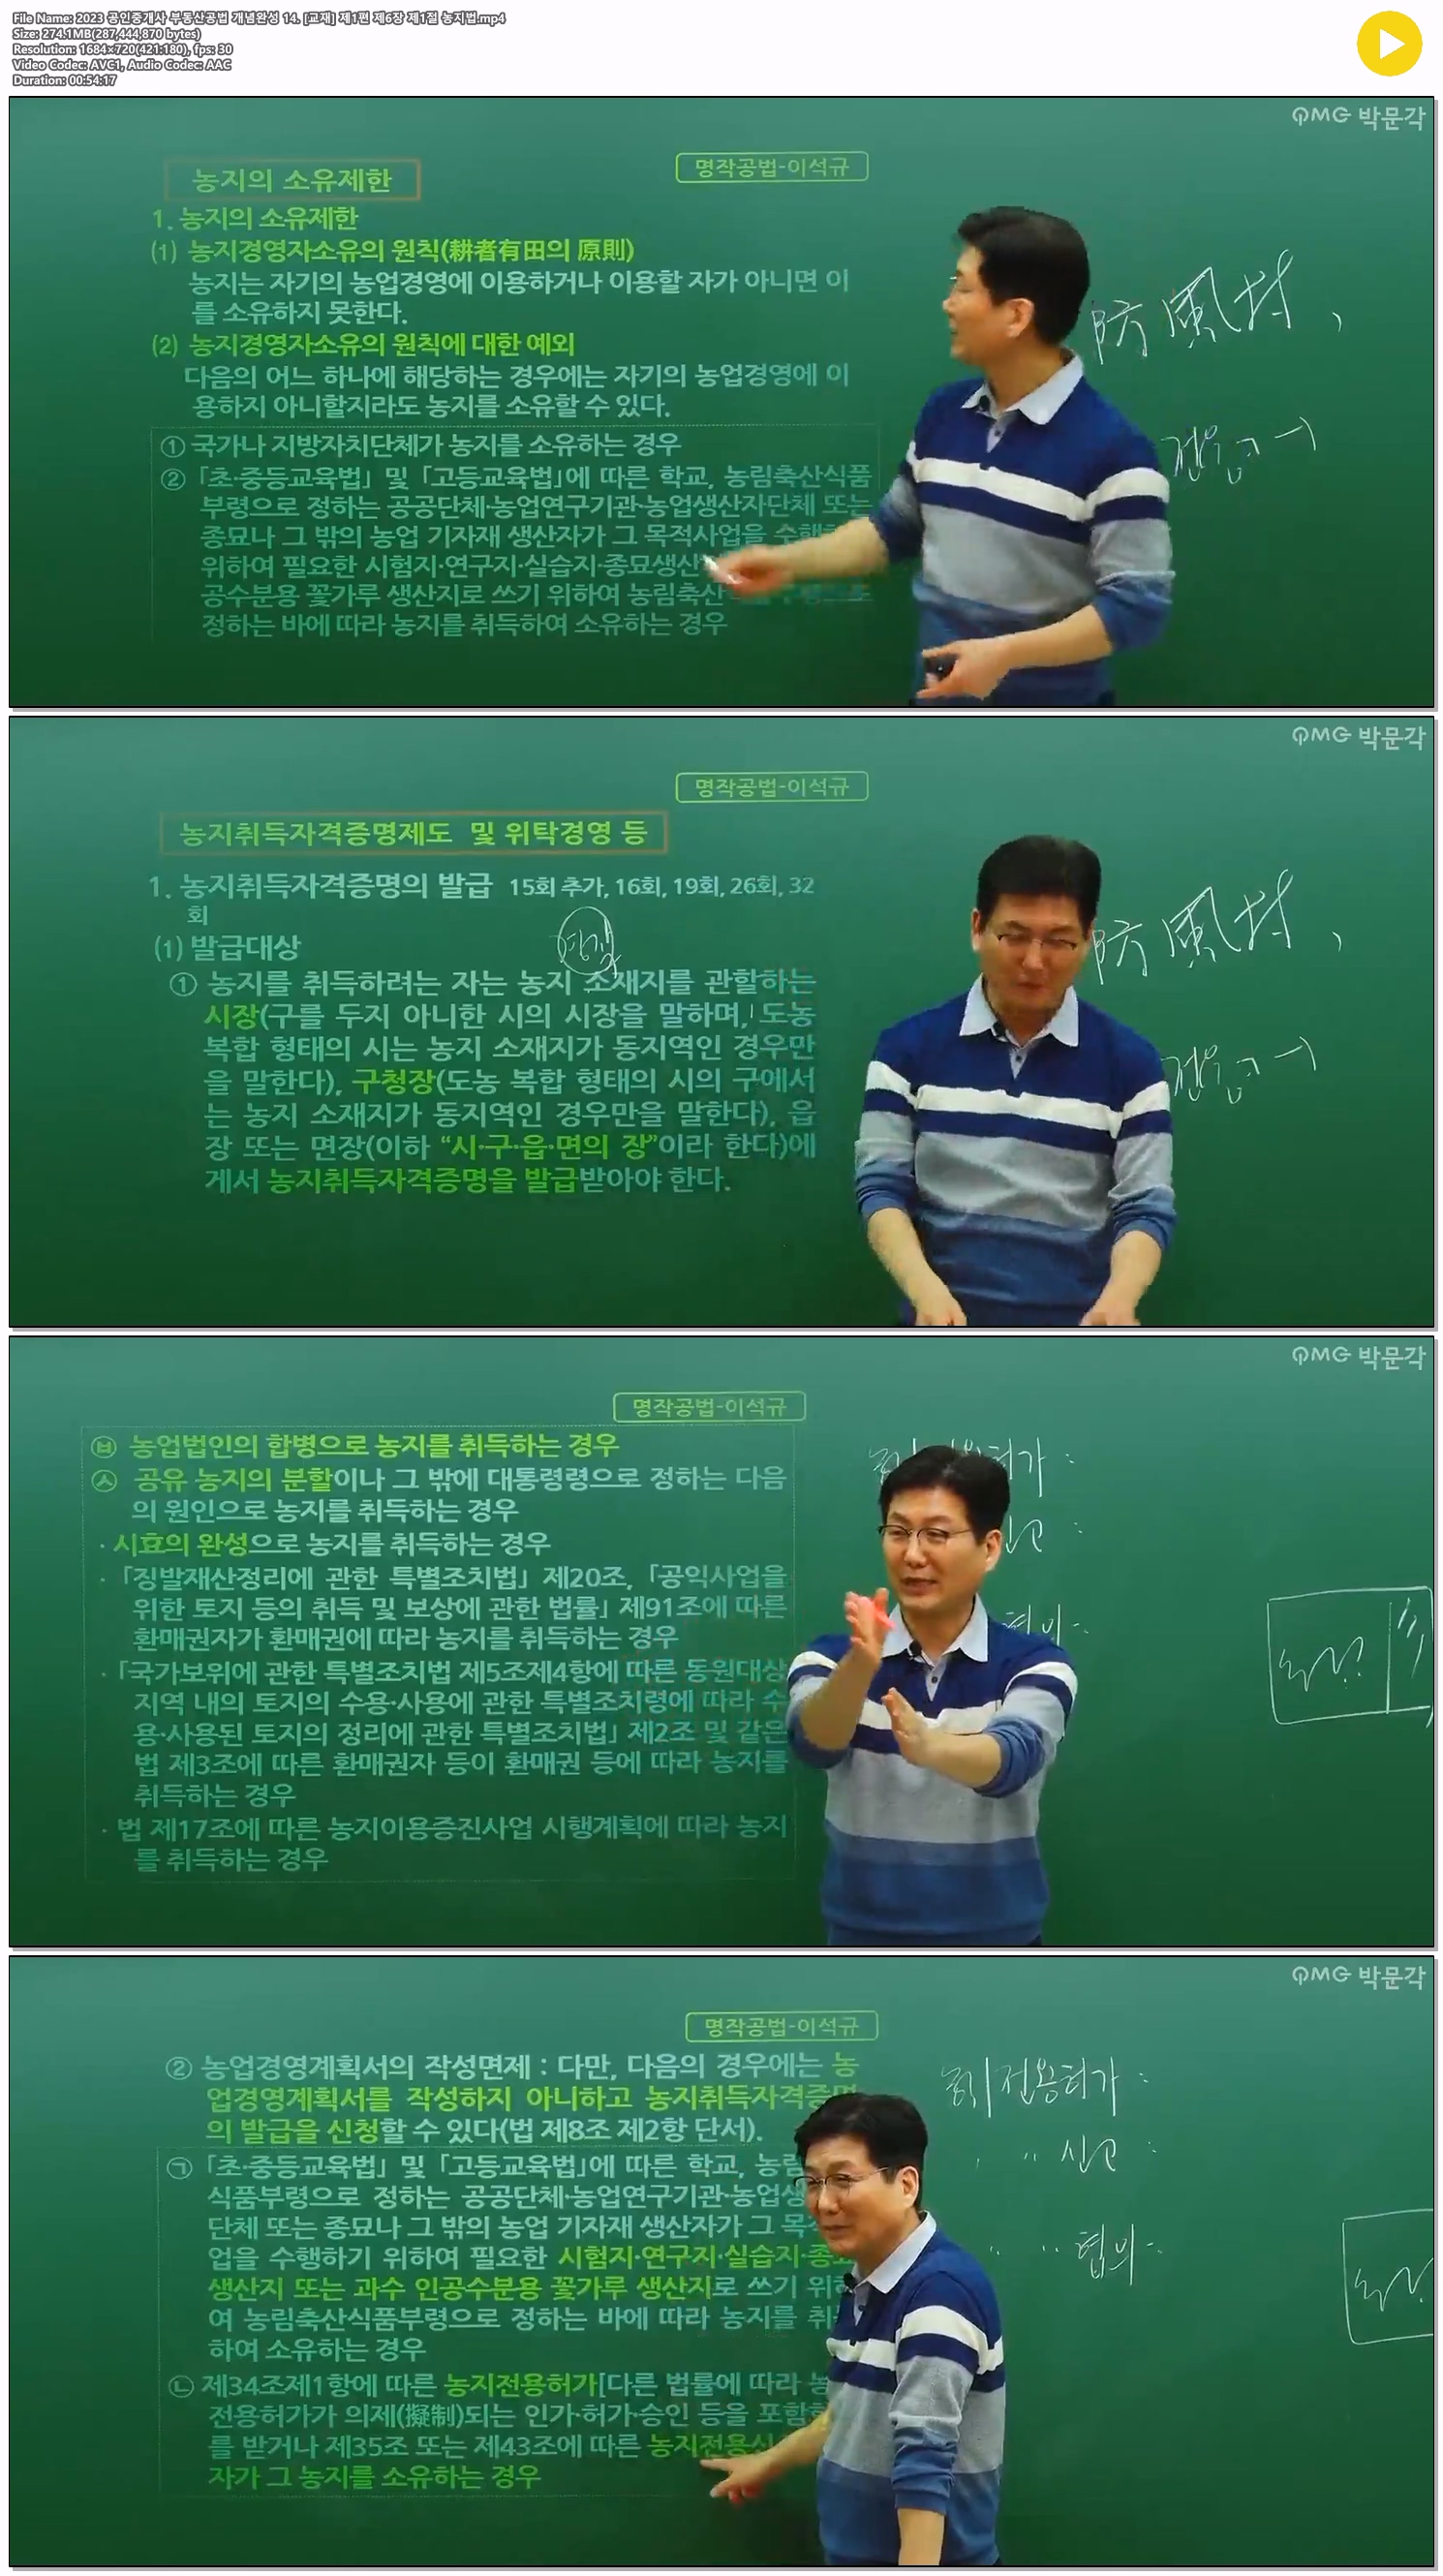 File Name: 2023 공인중개사 부동산공법 개념완성 14. [교재] 제1편 제6장 제1절 농지법.mp4
Size: 274.1MB(287,444,870 bytes)
Resolution: 1684×720(421:180), fps: 30
Video Codec: AVC1, Audio Codec: AAC
Duration: 00:54:17
PMG 박문각
명작공법-이석규
농지의 소유제한
1. 농지의 소유제한
(1) 농지경영자소유의 원칙(耕者有田의 原則)
농지는 자기의 농업경영에 이용하거나 이용할 자가 아니면 이
를 소유하지 못한다.
(2) 농지경영자소유의 원칙에 대한 예외
다음의 어느 하나에 해당하는 경우에는 자기의 농업경영에 이
용하지 아니할지라도 농지를 소유할 수 있다.
① 국가나 지방자치단체가 농지를 소유하는 경우
② 「초·중등교육법」 및 「고등교육법」에 따른 학교, 농림축산식품
부령으로 정하는 공공단체·농업연구기관·농업생산자단체 또는
종묘나 그 밖의 농업 기자재 생산자가 그 목적사업을 수행
위하여 필요한 시험지·연구지·실습지·종묘생산
공수분용 꽃가루 생산지로 쓰기 위하여 농림축산
정하는 바에 따라 농지를 취득하여 소유하는 경우
防風林、
PMG 박문각
명작공법-이석규
농지취득자격증명제도 및 위탁경영 등
1. 농지취득자격증명의 발급 15회 추가, 16회, 19회, 26회, 32
회
(1) 발급대상
① 농지를 취득하려는 자는 농지 소재지를 관할하는
시장(구를 두지 아니한 시의 시장을 말하며, 도농
복합 형태의 시는 농지 소재지가 동지역인 경우만
을 말한다), 구청장(도농 복합 형태의 시의 구에서
는 농지 소재지가 동지역인 경우만을 말한다), 읍
장 또는 면장(이하 “시·구·읍·면의 장”이라 한다)에
게서 농지취득자격증명을 발급받아야 한다.
防風林、
PMG 박문각
명작공법-이석규
㉥ 농업법인의 합병으로 농지를 취득하는 경우
㉦ 공유 농지의 분할이나 그 밖에 대통령령으로 정하는 다음
의 원인으로 농지를 취득하는 경우
· 시효의 완성으로 농지를 취득하는 경우
· 「징발재산정리에 관한 특별조치법」 제20조, 「공익사업을
위한 토지 등의 취득 및 보상에 관한 법률」 제91조에 따른
환매권자가 환매권에 따라 농지를 취득하는 경우
· 「국가보위에 관한 특별조치법 제5조제4항에 따른 동원대상
지역 내의 토지의 수용·사용에 관한 특별조치령에 따라 수
용·사용된 토지의 정리에 관한 특별조치법」 제2조 및 같은
법 제3조에 따른 환매권자 등이 환매권 등에 따라 농지를
취득하는 경우
· 법 제17조에 따른 농지이용증진사업 시행계획에 따라 농지
를 취득하는 경우
PMG 박문각
명작공법-이석규
② 농업경영계획서의 작성면제 : 다만, 다음의 경우에는 농
업경영계획서를 작성하지 아니하고 농지취득자격증명
의 발급을 신청할 수 있다(법 제8조 제2항 단서).
㉠ 「초·중등교육법」 및 「고등교육법」에 따른 학교, 농림
식품부령으로 정하는 공공단체·농업연구기관·농업생
단체 또는 종묘나 그 밖의 농업 기자재 생산자가 그 목
업을 수행하기 위하여 필요한 시험지·연구지·실습지·종묘
생산지 또는 과수 인공수분용 꽃가루 생산지로 쓰기 위하
여 농림축산식품부령으로 정하는 바에 따라 농지를 취
하여 소유하는 경우
㉡ 제34조제1항에 따른 농지전용허가[다른 법률에 따라 농
전용허가가 의제(擬制)되는 인가·허가·승인 등을 포함
를 받거나 제35조 또는 제43조에 따른 농지전용신
자가 그 농지를 소유하는 경우
농지전용허가 :
" 신고 :
" " 협의 :